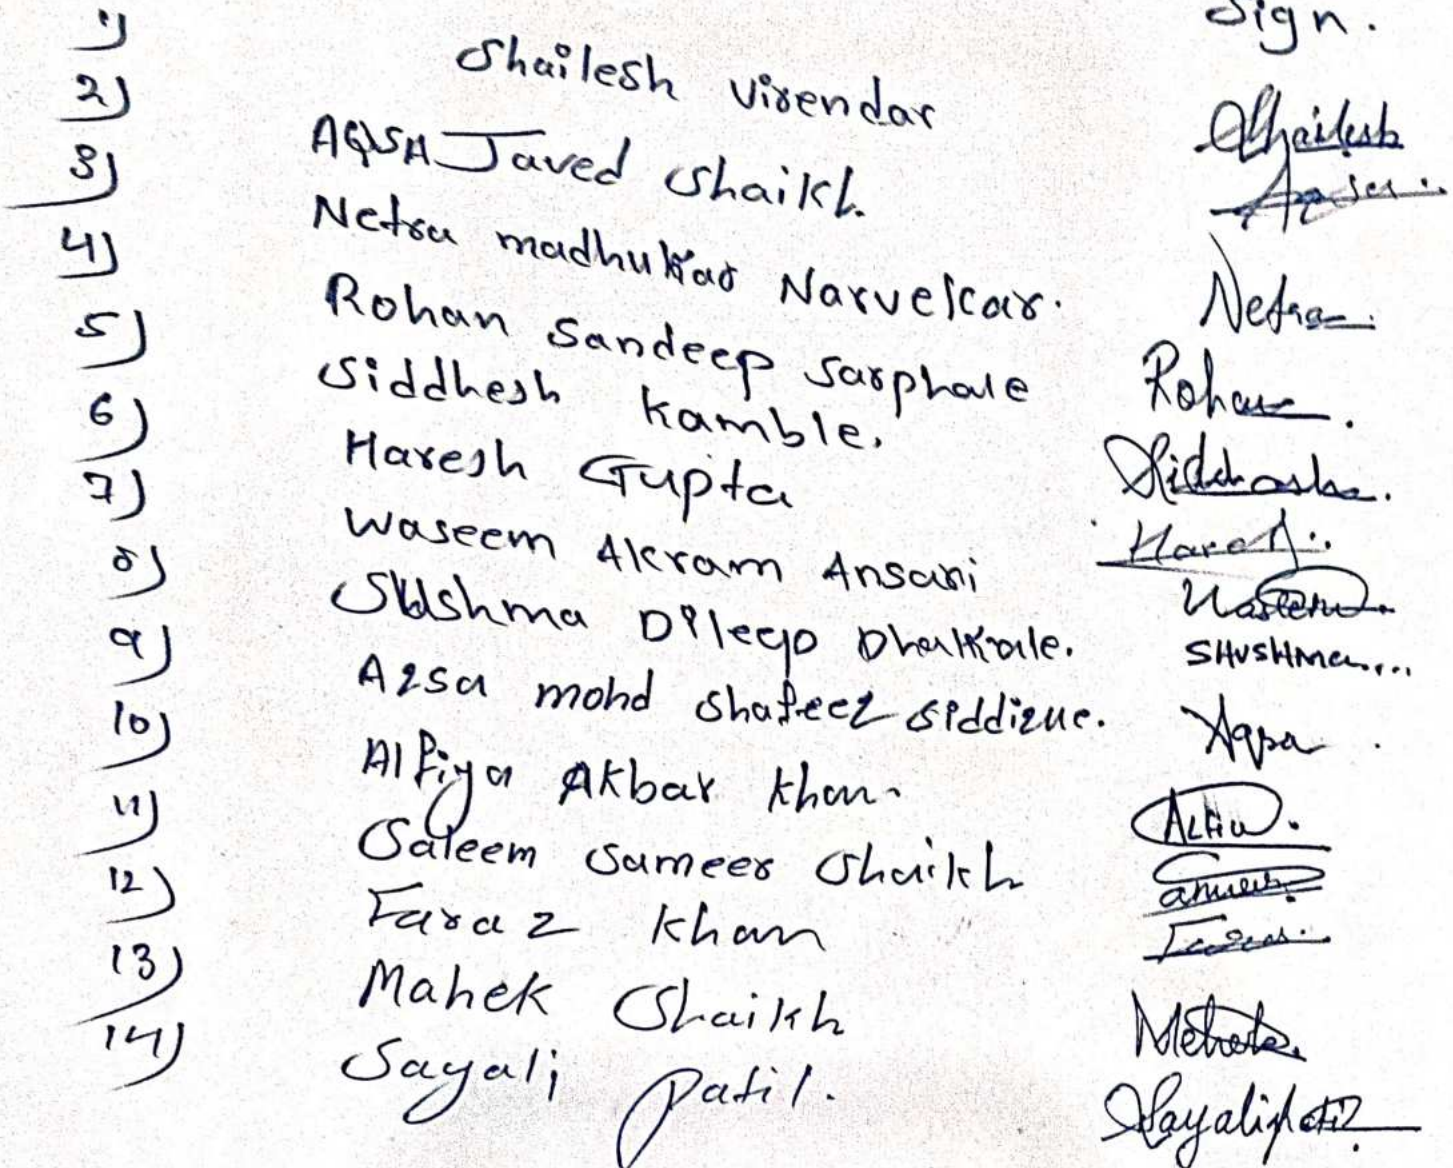 Sign.
1) Shailesh Virendar Shailesh
2) AQSA Javed Shaikh. Aqsa..
3) Netra madhukar Narvelkar. Netra.
4) Rohan Sandeep Sarphale Rohan.
5) Siddhesh Kamble. Siddhesh.
6) Haresh Gupta Haresh..
7) Waseem Akram Ansari Waseem.
8) Sushma Dileep Dhakale. SHUSHMa....
9) Aqsa mohd shafeeq siddique. Aqsa
10) Alfiya Akbar khan.
11) Saleem Sameer Shaikh
12) Faraz khan Faraz.
13) Mahek Shaikh Mehek.
14) Sayali Patil. Sayalipatil